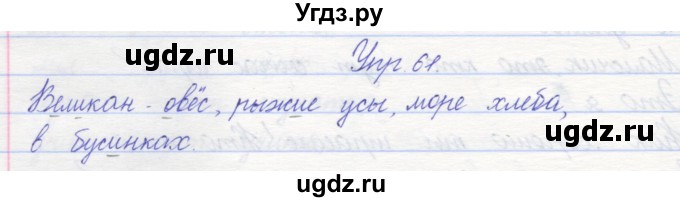 Угдз.ру
Упр. 61.
Великан - овёс, рыжие усы, море хлеба,
в бусинках.
ugdz.ru
ugdz.ru
ugdz.ru
ugdz.ru
ugdz.ru